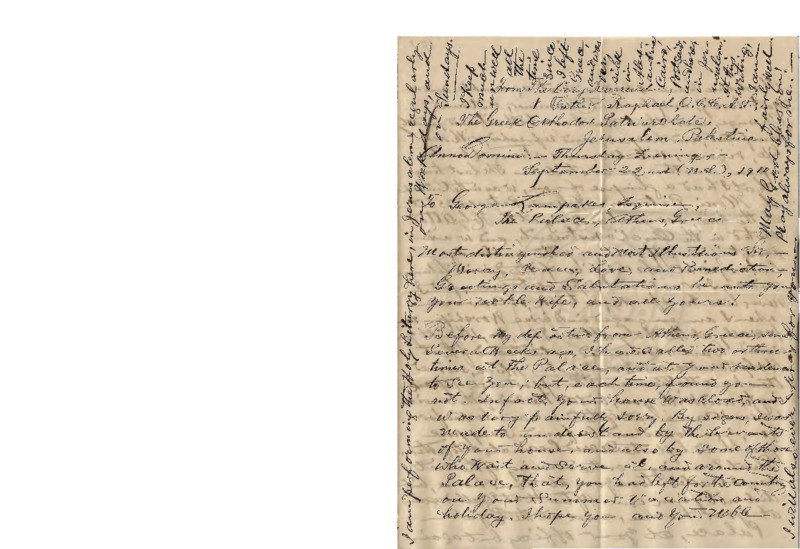 From the Very Reverend
Father Raphael
The Greek Orthodox Patriarchate.
Jerusalem, Palestine.
Anno Domini:— Thursday Evening,—
September 22nd (N.S.), 19
To George Lampakes Esquire,
The Palace, Athens, Greece
Most distinguished and Most Illustrious Sir,—
Mercy, Peace, Love, and Benediction,—
Greetings and Salutations be unto you
your noble Wife, and all yours!
Before my departure from Athens, Greece, some
Several Weeks ago, I had called two or three
times at the Palace, and at your residence
to see You, but, each time, found you
not. Infact, Your house was closed, and
I was very painfully sorry. By signs, I was
made to understand by the servants
of Your house, and also by some of those
who Wait and Serve at, and around the
Palace, that, you had left for the country
on Your Summer Vacation and
holiday. I hope you and Your noble—
I am performing the Holy Liturgy here, in Jerusalem, regularly
on Week days, and
on Sundays.
I Keep
much
well
all
the
time
Since
I left
Greece,
in
Cairo,
Port Said,
in Jer-
usalem.
at this
writing
I am,
fairly well
May God Bless you!
Pray always for me.—
I will also ever pray for you—